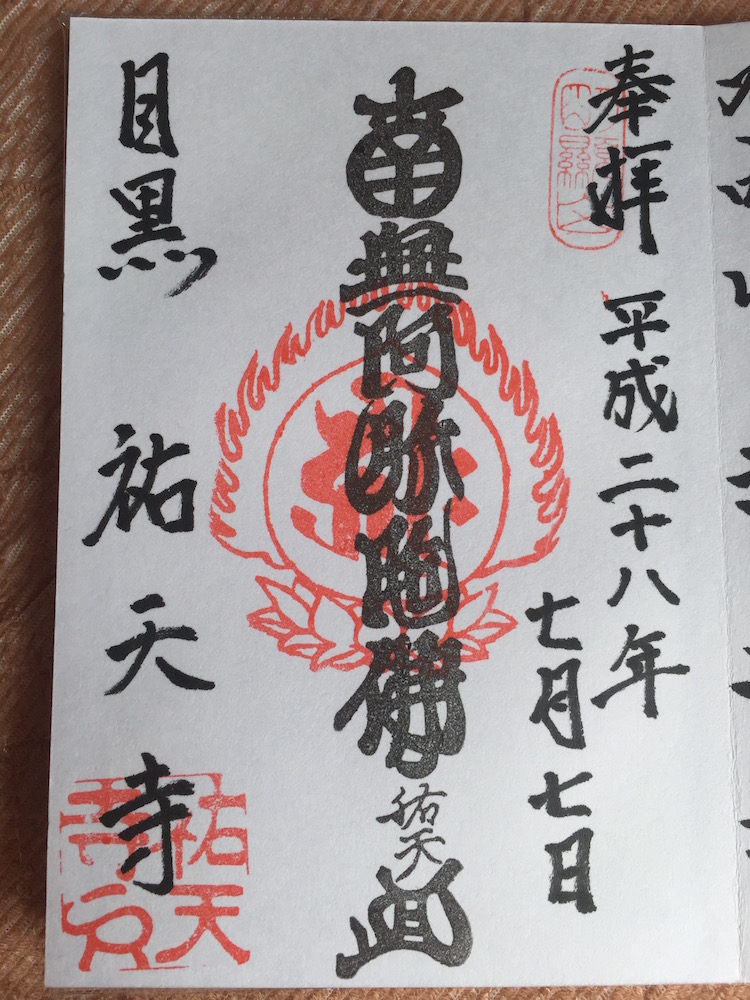 奉拝 平成二十八年
七月七日
南無阿弥陀佛
祐天
目黒 祐天寺
祐天